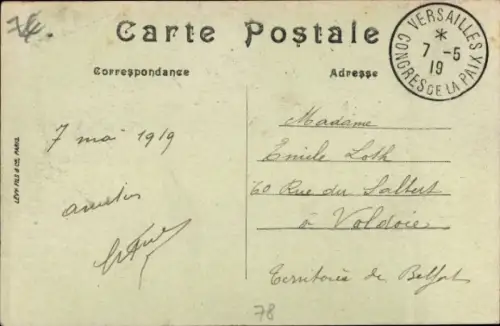 Carte Postale
Correspondance
Adresse
VERSAILLES
CONGRES DE LA PAIX
*
7 -5
19
LÉVY FILS & Cie, PARIS
7 mai 1919
Madame
Emile Loth
60 Rue du Salbert
à Valdoie
Territoire de Belfort
78